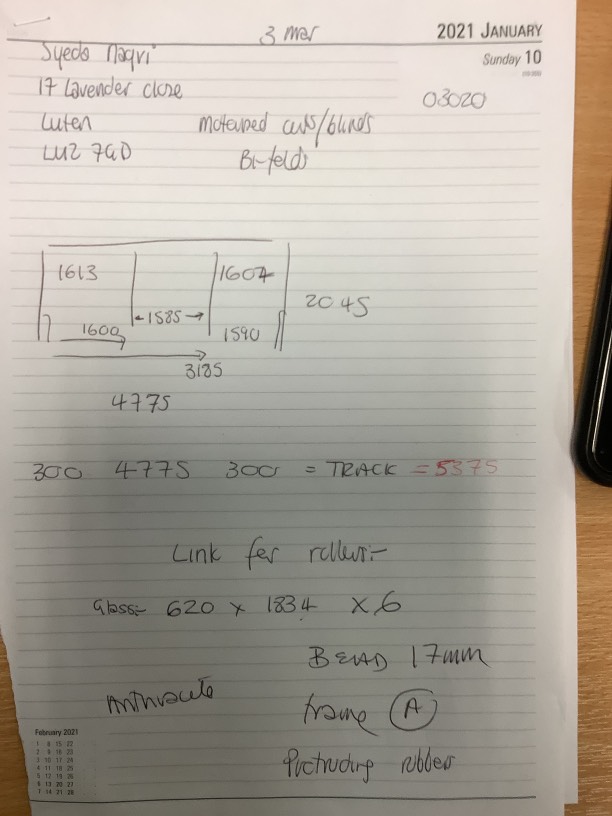 3 mar
2021 JANUARY
Sunday 10
Syeda Naqvi
17 Lavender close
03020
Luton
motorised curts/blinds
LU2 7GD
Bi-folds
1613
1607
2045
1585
1600
1590
3185
4775
300 4775 300 = TRACK = 5375
Link for rollers:-
Glass:- 620 x 1834 x 6
BEAD 17mm
Anthracite
frame A
Protruding rubber
February 2021
1 8 15 22
2 9 16 23
3 10 17 24
4 11 18 25
5 12 19 26
6 13 20 27
7 14 21 28